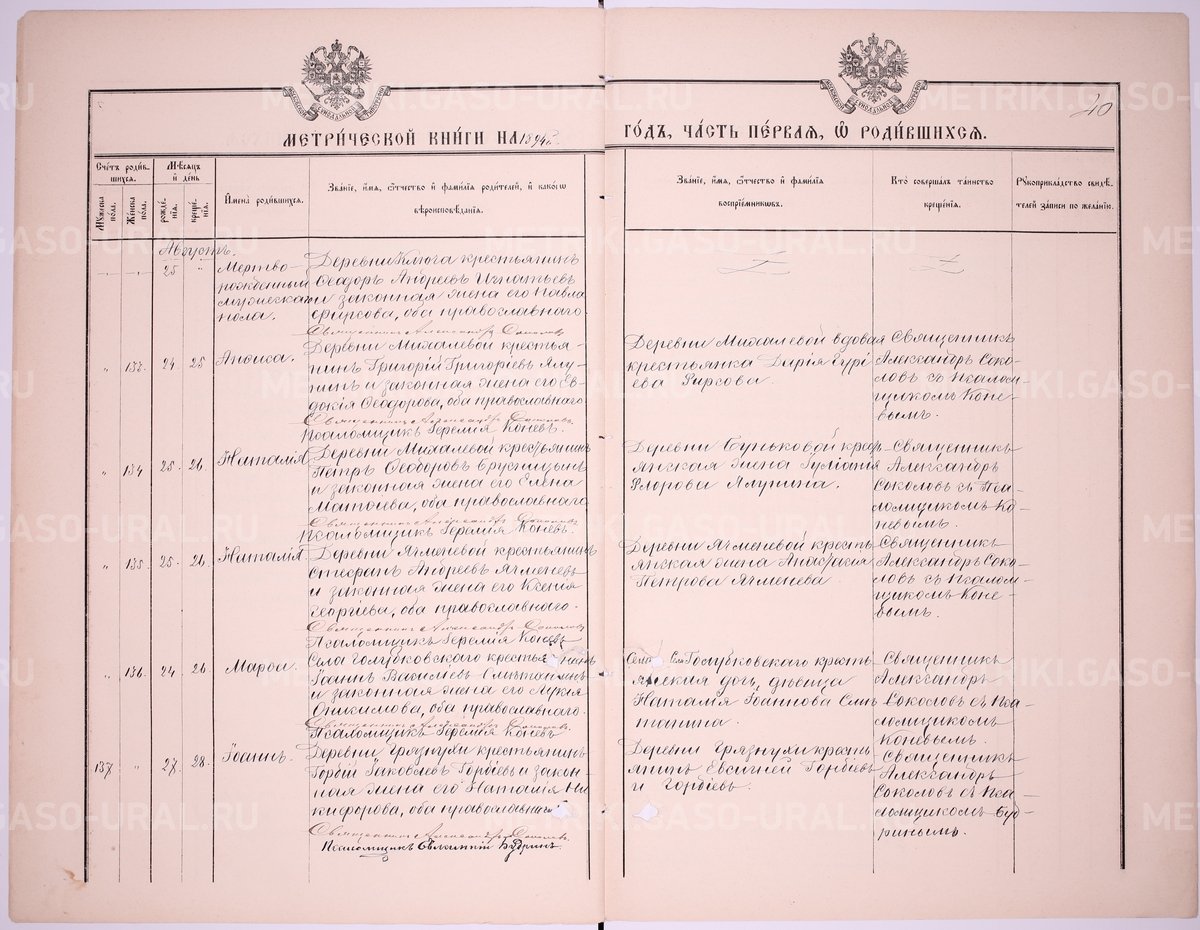 METRIKI.GASO-URAL.RU
20
МЕТРИ́ЧЕСКОЙ КНИ́ГИ НА 1894й
ГО́ДЪ, ЧА́СТЬ ПЕ́РВАЯ, Ѿ РОДИ́ВШИХСЯ.
Сче́тъ роди́вшихся.
Му́жеска по́ла.
Же́нска по́ла.
Мѣ́сяцъ и҆ де́нь
рожде́нїя.
креще́нїя.
И҆мена̀ роди́вшихся.
Зва́нїе, и҆́мя, ѻ҆́тчество и҆ фами́лїя роди́телей, и҆ како́гѡ
вѣроисповѣ́данїя.
Зва́нїе, и҆́мя, ѻ҆́тчество и҆ фами́лїя
воспрїе́мникѡвъ.
Кто̀ соверша́лъ та́инство
креще́нїя.
Рꙋкоприкла́дство свидѣ́телей за́писи по жела́нїю.
Августъ.
25
Мертво-
рожденный
мужескаго
пола.
Деревни Ключа крестьянинъ
Ѳеодоръ Андреевъ Игнатьевъ
и законная жена его Павла
Фирсова, оба православнаго
Священникъ Александръ Соколовъ
24 25
Анѳиса.
Деревни Михалевой крестья-
нинъ Григорій Григорьевъ Ялу-
нинъ и законная жена его Ев-
докія Ѳеодорова, оба православнаго
Священникъ Александръ Соколовъ
Псаломщикъ Іеремія Коневъ.
Деревни Михалевой вдовая
крестьянка Дарія Гурі-
ева Фиркова.
Священникъ
Александръ Соко-
ловъ съ псалом-
щикомъ Коне-
вымъ.
134 25 26
Наталія
Деревни Михалевой крестьянинъ
Петръ Ѳеодоровъ Брусницынъ
и законная жена его Елена
Матѳіева, оба православнаго
Священникъ Александръ Соколовъ
Псаломщикъ Іеремія Коневъ.
Деревни Буньковой крест-
янская жена Іуліанія
Флорова Ялунина.
Священникъ
Александръ
Соколовъ съ Пса-
ломщикомъ Ко-
невымъ.
135 25 26
Наталія
Деревни Ячменевой крестьянинъ
Стефанъ Андреевъ Ячменевъ
и законная жена его Ксенія
Георгіева, оба православнаго.
Священникъ Александръ Соколовъ
Псаломщикъ Іеремія Коневъ
Деревни Ячменевой кресть-
янская жена Анастасія
Петрова Ячменева.
Священникъ
Александръ Соко-
ловъ съ псалом-
щикомъ Коне-
вымъ.
136 24 26
Марѳа.
Села Голубковскаго крестьянинъ
Іоаннъ Васильевъ
и законная жена его Лукія
оба православнаго.
Священникъ Александръ Соколовъ
Псаломщикъ Іеремія Коневъ
Села Голубковскаго кресть-
янская дочь, дѣвица
Наталія Іоаннова
Священникъ
Александръ
Соколовъ съ Пса-
ломщикомъ
Коневымъ.
137 27 28
Іоаннъ.
Деревни Грязнухи крестьянинъ
Іаковлевъ Горбіевъ и закон-
ная жена его Наталія Ни-
кифорова, оба православнаго
Священникъ Александръ Соколовъ
Псаломщикъ Кудринъ.
Деревни Грязнухи кресть-
янинъ Евсигней Горбіевъ
и Горбіевъ.
Священникъ
Александръ
Соколовъ съ Пса-
ломщикомъ Куд-
ринымъ.